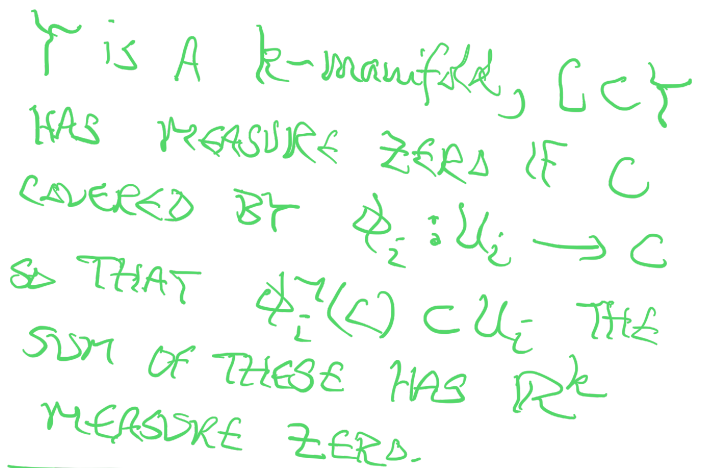 Y is A k-manifold, C ⊂ Y
HAS MEASURE ZERO IF C
COVERED BY ϕᵢ : Uᵢ → C
SO THAT ϕᵢ⁻¹(C) ⊂ Uᵢ THE
SUM OF THESE HAS ℝᵏ
MEASURE ZERO.